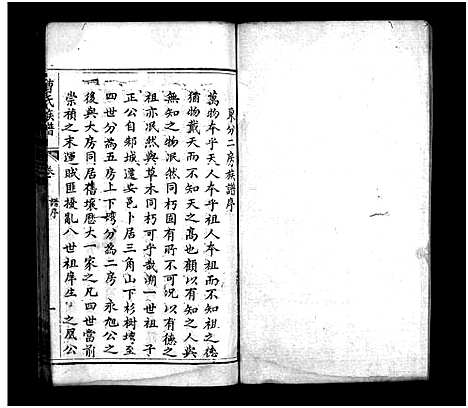 東分二房族譜序
萬物本乎天人本乎祖人本乎祖而不知祖之德
猶物戴天而不知天之高也顧以有德之人與
無知之物泯然同朽固有所不可況以有德之
祖亦泯然與草木同朽可乎哉溯一世祖子
正公自邾城遷安邑卜居三角山下杉樹塆至
四世分為五房上下塆分為二房永旭公之
後與大房同居舊壤歷大一家之凡四世當前
崇禎之末運賊匪擾亂八世祖庠生之鳳公
曹氏族譜
卷
譜序
一